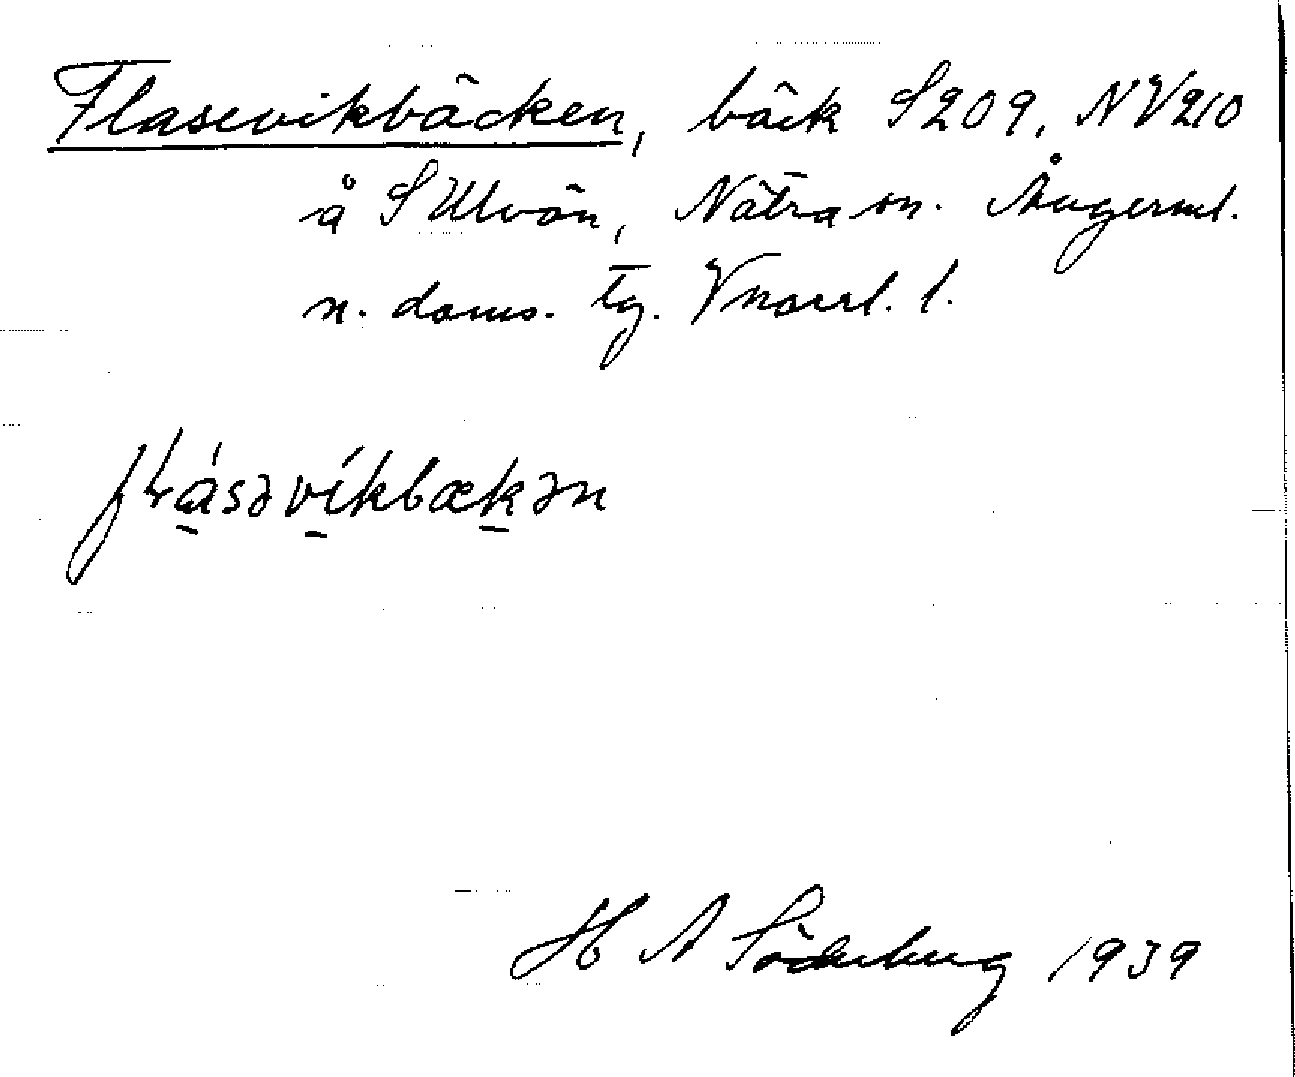 Flasevikbäcken, bäck S209, NV210
å S Ulvön, Nätra sn. Ångerml.
n. doms. tg. Vnorrl. l.
fɫásəvíkbækən
H A Söderberg 1939